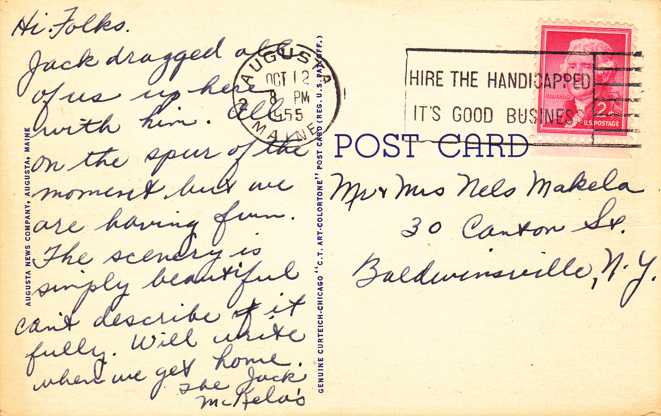 Hi. Folks.
Jack dragged all
of us up here
with him. All
on the spur of the
moment but we
are having fun.
The scenery is
simply beautiful
can't describe it
fully. Will write
when we get home.
The Jack
McKela's
AUGUSTA
OCT 12
8 PM
1955
MAINE
2
HIRE THE HANDICAPPED
IT'S GOOD BUSINESS
2¢
U.S. POSTAGE
POST CARD
Mr & Mrs Nels Makela
30 Canton St.
Baldwinsville, N.Y.
AUGUSTA NEWS COMPANY, AUGUSTA, MAINE
GENUINE CURTEICH-CHICAGO "C.T. ART-COLORTONE" POST CARD (REG. U.S. PAT. OFF.)